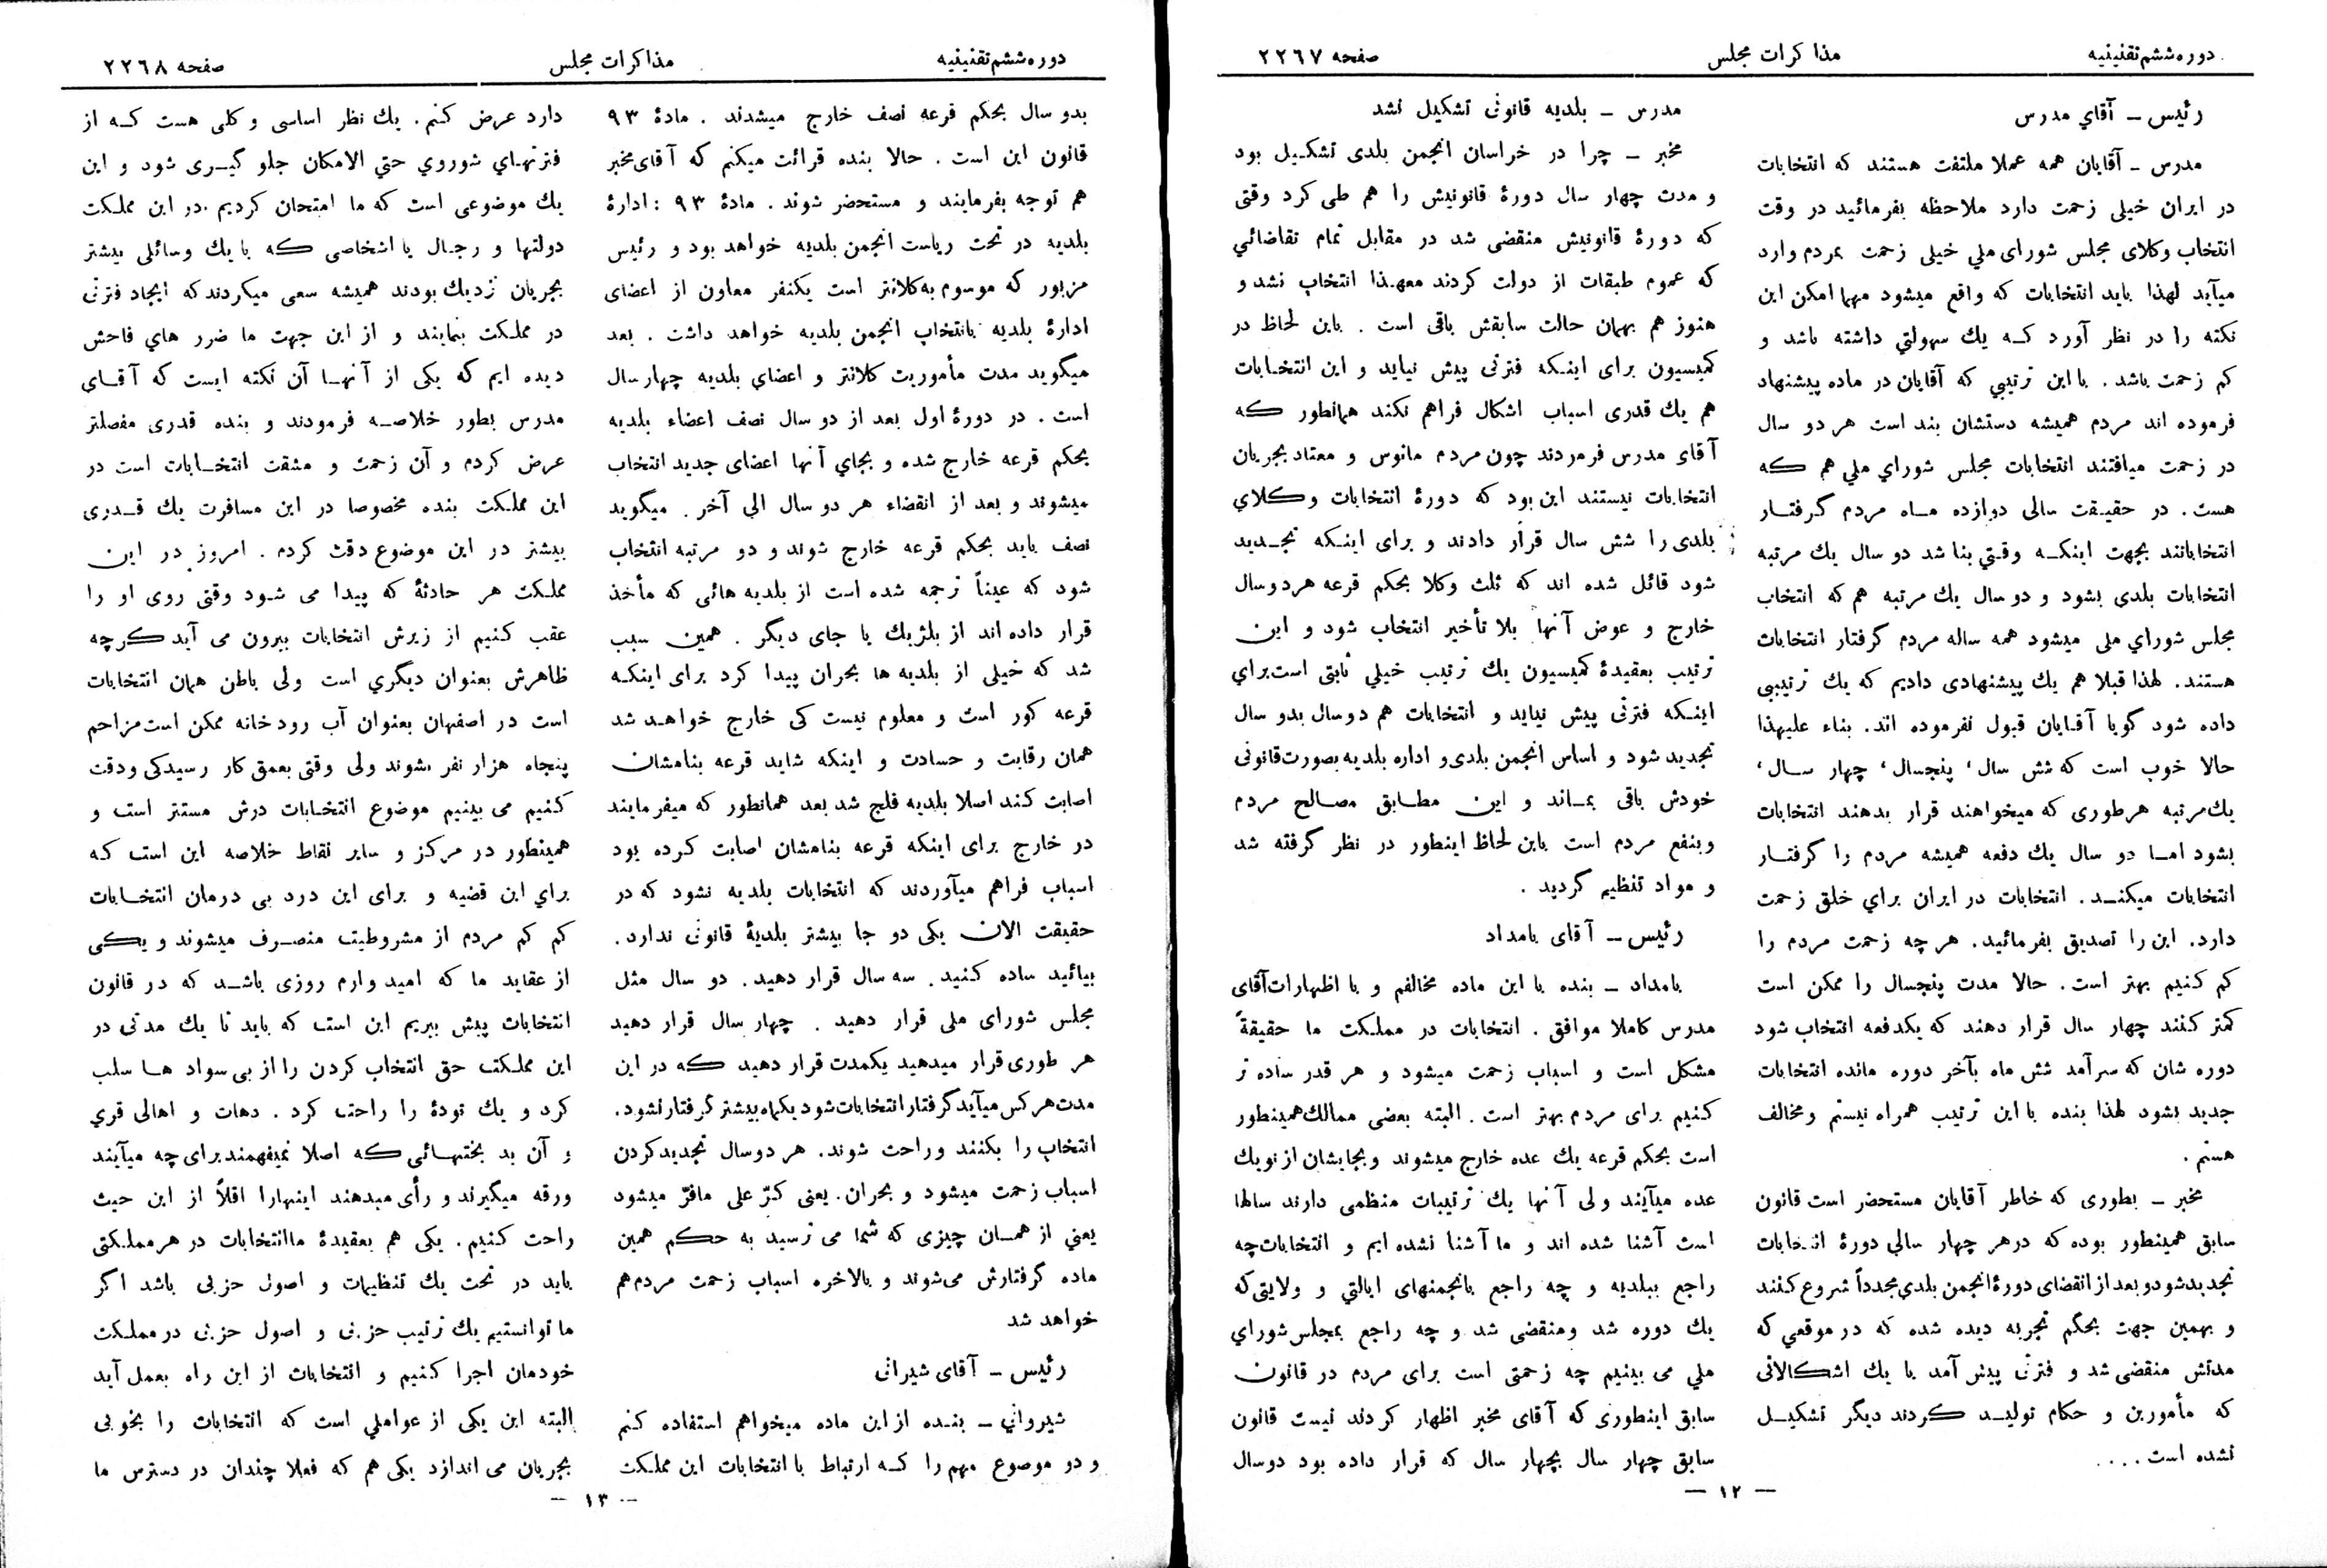 دوره ششم تقنینیه
مذاکرات مجلس
صفحه ۲۲۶۷
رئیس ــ آقاي مدرس
مدرس ــ آقایان همه عملا ملتفت هستند که انتخابات
در ایران خیلی زحمت دارد ملاحظه بفرمائید در وقت
انتخاب وکلای مجلس شورای ملي خیلی زحمت بمردم وارد
میآید لهذا باید انتخابات که واقع میشود مهما امکن این
نکته را در نظر آورد کـه یك سهولتي داشته باشد و
کم زحمت باشد . با این ترتیبي که آقایان در ماده پیشنهاد
فرموده اند مردم همیشه دستشان بند است هر دو سال
در زحمت میافتند انتخابات مجلس شوراي ملي هم که
هست . در حقیقت سالی دوازده مـاه مردم گرفتـار
انتخاباتند بجهت اینکـه وقتي بنا شد دو سال یك مرتبه
انتخابات بلدی بشود و دو سال یك مرتبه هم که انتخاب
مجلس شوراي ملی میشود همه ساله مردم گرفتار انتخابات
هستند . لهذا قبلا هم یك پیشنهادی دادیم که یك ترتیبی
داده شود گویا آقـایان قبول نفرموده اند . بناء علیهذا
حالا خوب است که شش سال ، پنجسال ، چهار سـال ،
یك مرتبه هر طوری که میخواهند قرار بدهند انتخابات
بشود امـا دو سال یك دفعه همیشه مردم را گرفتـار
انتخابات میکنـد . انتخابات در ایران براي خلق زحمت
دارد . این را تصدیق بفرمائید . هر چه زحمت مردم را
کم کنیم بهتر است . حالا مدت پنجسال را ممکن است
کمتر کنند چهار سال قرار دهند که یکدفعه انتخاب شود
دوره شان که سرآمد شش ماه بآخر دوره مانده انتخابات
جدید بشود لهذا بنده با این ترتیب همراه نیستم و مخالف
هستم .
مخبر ــ بطوری که خاطر آقایان مستحضر است قانون
سابق همینطور بوده که در هر چهار سالی دورۀ انتخابات
تجدید شود و بعد از انقضای دورۀ انجمن بلدي مجدداً شروع کنند
و بهمین جهت بحکم تجربه دیده شده که در موقعي که
مدتش منقضی شد و فترتی پیش آمد با یك اشکالاتی
که مأمورین و حکام تولیـد کردند دیگر تشکیـل
نشده است ....
مدرس ــ بلدیه قانونی تشکیل نشد
مخبر ــ چرا در خراسان انجمن بلدی تشکیل بود
و مدت چهار سال دورۀ قانونیش را هم طی کرد وقتی
که دورۀ قانونیش منقضی شد در مقابل تمام تقاضائي
که عموم طبقات از دولت کردند معهـذا انتخاب نشد و
هنوز هم بهمان حالت سابقش باقی است . باین لحاظ در
کمیسیون برای اینـکه فترتی پیش نیاید و این انتخـابات
هم یك قدری اسباب اشکال فراهم نکند همانطور که
آقای مدرس فرمودند چون مردم مانوس و معتاد بجریان
انتخابات نیستند این بود که دورۀ انتخابات وکلاي
بلدی را شش سال قرار دادند و برای اینـکه تجـدید
شود قائل شده اند که ثلث وکلا بحکم قرعه هر دو سال
خارج و عوض آنها بلا تأخیر انتخاب شود و این
ترتیب بعقیدۀ کمیسیون یك ترتیب خیلي ثابتی است براي
اینـکه فترتی پیش نیاید و انتخابات هم دو سال بدو سال
تجدید شود و اساس انجمن بلدی و اداره بلدیه بصورت قانونی
خودش باقی بمـاند و این مطـابق مصـالح مردم
و بنفع مردم است باین لحاظ اینطور در نظر گرفته شد
و مواد تنظیم گردید .
رئیس ــ آقای بامداد
بامداد ــ بنده با این ماده مخالفم و با اظهارات آقای
مدرس کاملا موافق . انتخابات در مملکت ما حقیقةً
مشکل است و اسباب زحمت میشود و هر قدر ساده تر
کنیم برای مردم بهتر است . البته بعضی ممالك همینطور
است بحکم قرعه یك عده خارج میشوند و بجایشان از نو یك
عده میآیند ولی آنها یك ترتیبات منظمی دارند سالها
است آشنا شده اند و ما آشنا نشده ایم و انتخابات چه
راجع ببلدیه و چه راجع بانجمنهای ایالتي و ولایتی که
یك دوره شد و منقضی شد و چه راجع بمجلس شوراي
ملي می بینیم چه زحمتی است برای مردم در قانون
سابق اینطوری که آقای مخبر اظهار کردند نیست قانون
سابق چهار سال بچهار سال که قرار داده بود دو سال
ــ ۱۲ ــ
دوره ششم تقنینیه
مذاکرات مجلس
صفحه ۲۲۶۸
بدو سال بحکم قرعه نصف خارج میشدند . مادۀ ۹۳
قانون این است . حالا بنده قرائت میکنم که آقای مخبر
هم توجه بفرمایند و مستحضر شوند . مادۀ ۹۳ : ادارۀ
بلدیه در تحت ریاست انجمن بلدیه خواهد بود و رئیس
مزبور که موسوم به کلانتر است یکنفر معاون از اعضای
ادارۀ بلدیه بانتخاب انجمن بلدیه خواهد داشت . بعد
میگوید مدت مأموریت کلانتر و اعضاي بلدیه چهار سال
است . در دورۀ اول بعد از دو سال نصف اعضاء بلدیه
بحکم قرعه خارج شده و بجاي آنها اعضای جدید انتخاب
میشوند و بعد از انقضاء هر دو سال الی آخر . میگوید
نصف باید بحکم قرعه خارج شوند و دو مرتبه انتخاب
شود که عیناً ترجمه شده است از بلدیه هائی که مأخذ
قرار داده اند از بلژیك یا جای دیگر . همین سبب
شد که خیلی از بلدیه ها بحران پیدا کرد برای اینکـه
قرعه کور است و معلوم نیست کی خارج خواهـد شد
همان رقابت و حسادت و اینکه شاید قرعه بنامشان
اصابت کند اصلا بلدیه فلج شد بعد همانطور که میفرمایند
در خارج برای اینکه قرعه بنامشان اصابت کرده بود
اسباب فراهم میآوردند که انتخابات بلدیه نشود که در
حقیقت الان یکی دو جا بیشتر بلدیۀ قانونی ندارد .
بیائید ساده کنید . سه سال قرار دهید . دو سال مثل
مجلس شورای ملی قرار دهید . چهار سال قرار دهید
هر طوری قرار میدهید یکمدت قرار دهید که در این
مدت هر کس میآید گرفتار انتخابات شود یکماه بیشتر گرفتار نشود .
انتخاب را بکنند و راحت شوند . هر دو سال تجدید کردن
اسباب زحمت میشود و بحران . یعنی کرّ علی مافرّ میشود
یعني از همـان چیزی که شما می ترسید به حکم همین
ماده گرفتارش می شوند و بالاخره اسباب زحمت مردم هم
خواهد شد
رئیس ــ آقای شیرانی
شیرواني ــ بنـده از این ماده میخواهم استفاده کنم
و دو موضوع مهم را کـه ارتباط با انتخابات این مملکت
دارد عرض کنم . یك نظر اساسی و کلی هست کـه از
فترتهـاي شوروي حتي الامکان جلو گیـری شود و این
یك موضوعی است که ما امتحان کردیم . در این مملکت
دولتها و رجـال یا اشخاصی که با یك وسائلی بیشتر
بجریان نزدیك بودند همیشه سعی میکردند که ایجاد فترتی
در مملکت بنمایند و از این جهت ما ضرر هاي فاحش
دیده ایم که یکی از آنهـا آن نکته ایست که آقـای
مدرس بطور خلاصـه فرمودند و بنده قدری مفصلتر
عرض کردم و آن زحمت و مشقت انتخـابات است در
این مملکت بنده مخصوصا در این مسافرت یك قـدری
بیشتر در این موضوع دقت کردم . امروز در این
مملکت هر حادثۀ که پیدا می شـود وقتی روی او را
عقب کنیم از زیرش انتخابات بیرون می آید گرچه
ظاهرش بعنوان دیگري است ولی باطن همان انتخابات
است در اصفهان بعنوان آب رودخانه ممکن است مزاحم
پنجاه هزار نفر بشوند ولی وقتی بعمق کار رسیدگی و دقت
کنیم می بینیم موضوع انتخـابات درش مستتر است و
همینطور در مرکز و سایر نقاط خلاصه این است که
براي این قضیه و برای این درد بی درمان انتخـابات
کم کم مردم از مشروطیت منصـرف میشوند و یکی
از عقاید ما که امید وارم روزی باشـد که در قانون
انتخابات پیش ببریم این است که باید تا یك مدتی در
این مملکت حق انتخاب کردن را از بی سواد هـا سلب
کرد و یك تودۀ را راحت کرد . دهات و اهالی قری
و آن بد بختهـائی که اصلا نمیفهمند برای چه میآیند
ورقه میگیرند و رأی میدهند اینهارا اقلاً از این حیث
راحت کنیم . یکی هم بعقیدۀ ما انتخابات در هر مملکتی
باید در تحت یك تنظیمات و اصول حزبی باشد اگر
ما توانستیم یك ترتیب حزبی و اصول حزبی در مملکت
خودمان اجرا کنیم و انتخابات از این راه بعمل آید
البته این یکی از عواملي است که انتخابات را بخوبی
بجریان می اندازد یکی هم که فعلا چندان در دسترس ما
ــ ۱۳ ــ